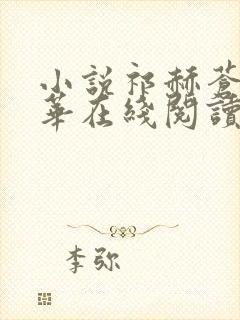 小說祁赫蒼
華在綫閱讀
李弥